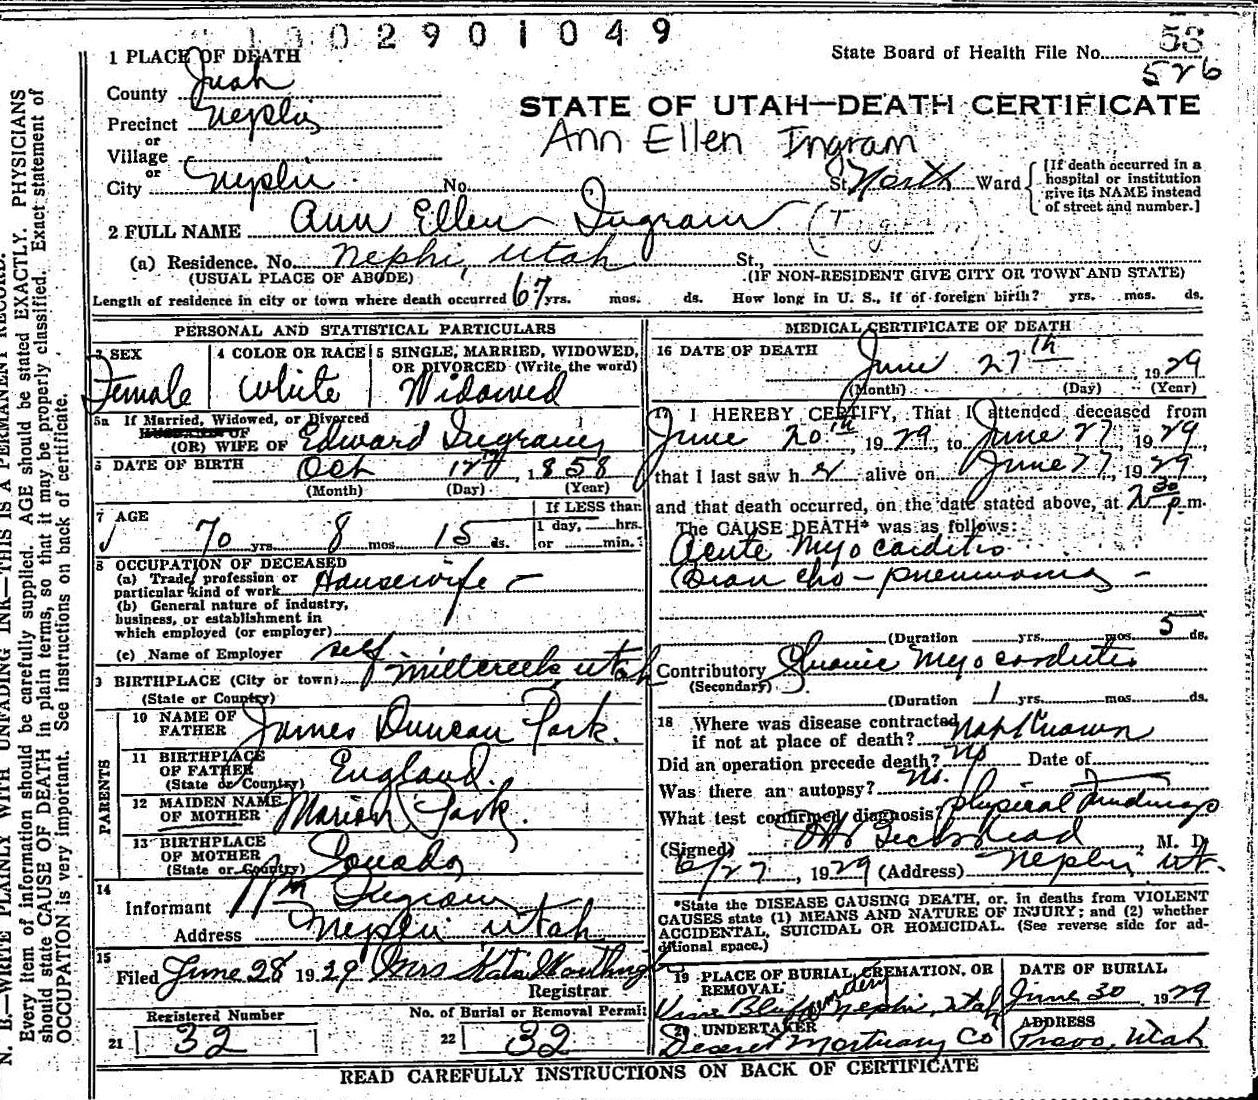 1002901049
State Board of Health File No. 53
526
1 PLACE OF DEATH
County Juab
Precinct Nephi
or
Village
or
City Nephi No. St. North Ward
[If death occurred in a hospital or institution give its NAME instead of street and number.]
STATE OF UTAH—DEATH CERTIFICATE
Ann Ellen Ingram
2 FULL NAME Ann Ellen Ingram
(a) Residence. No. Nephi, Utah St.,
(USUAL PLACE OF ABODE) (IF NON-RESIDENT GIVE CITY OR TOWN AND STATE)
Length of residence in city or town where death occurred 67 yrs. mos. ds. How long in U. S., if of foreign birth? yrs. mos. ds.
PERSONAL AND STATISTICAL PARTICULARS
3 SEX
Female
4 COLOR OR RACE
White
5 SINGLE, MARRIED, WIDOWED, OR DIVORCED (Write the word)
Widowed
5a If Married, Widowed, or Divorced
HUSBAND OF
(OR) WIFE OF Edward Ingram
6 DATE OF BIRTH Oct 12th, 1858
(Month) (Day) (Year)
7 AGE
70 yrs. 8 mos. 15 ds.
If LESS than
1 day, hrs.
or min.
8 OCCUPATION OF DECEASED
(a) Trade, profession or
particular kind of work Housewife
(b) General nature of industry,
business, or establishment in
which employed (or employer)
(c) Name of Employer self
9 BIRTHPLACE (City or town) Millcreek, Utah
(State or Country)
PARENTS
10 NAME OF FATHER James Duncan Park.
11 BIRTHPLACE OF FATHER England.
(State or Country)
12 MAIDEN NAME OF MOTHER Marion Park.
13 BIRTHPLACE OF MOTHER
(State or Country)
14
Informant Wm Ingram
Address Nephi Utah
15
Filed June 28 1929 Mrs Kate Worthington
Registrar
Registered Number
21 32
No. of Burial or Removal Permit
22 32
MEDICAL CERTIFICATE OF DEATH
16 DATE OF DEATH
June 27th 1929
(Month) (Day) (Year)
17 I HEREBY CERTIFY, That I attended deceased from
June 20th, 1929, to June 27, 1929
that I last saw her alive on June 27, 1929
and that death occurred, on the date stated above, at 2 30 p.m.
The CAUSE DEATH* was as follows:
Acute Myocarditis
Broncho-pneumonia -
(Duration yrs. mos. 5 ds.
Contributory Chronic Myocarditis
(Secondary)
(Duration 1 yrs. mos. ds.
18 Where was disease contracted
if not at place of death? Not known
Did an operation precede death? No Date of
Was there an autopsy? No.
What test confirmed diagnosis? Physical Findings
(Signed) Beckstead, M. D.
6/27, 1929 (Address) Nephi, Ut.
*State the DISEASE CAUSING DEATH, or, in deaths from VIOLENT
CAUSES state (1) MEANS AND NATURE OF INJURY; and (2) whether
ACCIDENTAL, SUICIDAL OR HOMICIDAL. (See reverse side for additional space.)
19 PLACE OF BURIAL, CREMATION, OR REMOVAL
Vine Bluff Cemetery Nephi, Utah
DATE OF BURIAL
June 30 1929
20 UNDERTAKER
Deseret Mortuary Co
ADDRESS
Provo, Utah
READ CAREFULLY INSTRUCTIONS ON BACK OF CERTIFICATE
N. B.—WRITE PLAINLY WITH UNFADING INK—THIS IS A PERMANENT RECORD.
Every item of information should be carefully supplied. AGE should be stated EXACTLY. PHYSICIANS
should state CAUSE OF DEATH in plain terms, so that it may be properly classified. Exact statement of
OCCUPATION is very important. See instructions on back of certificate.